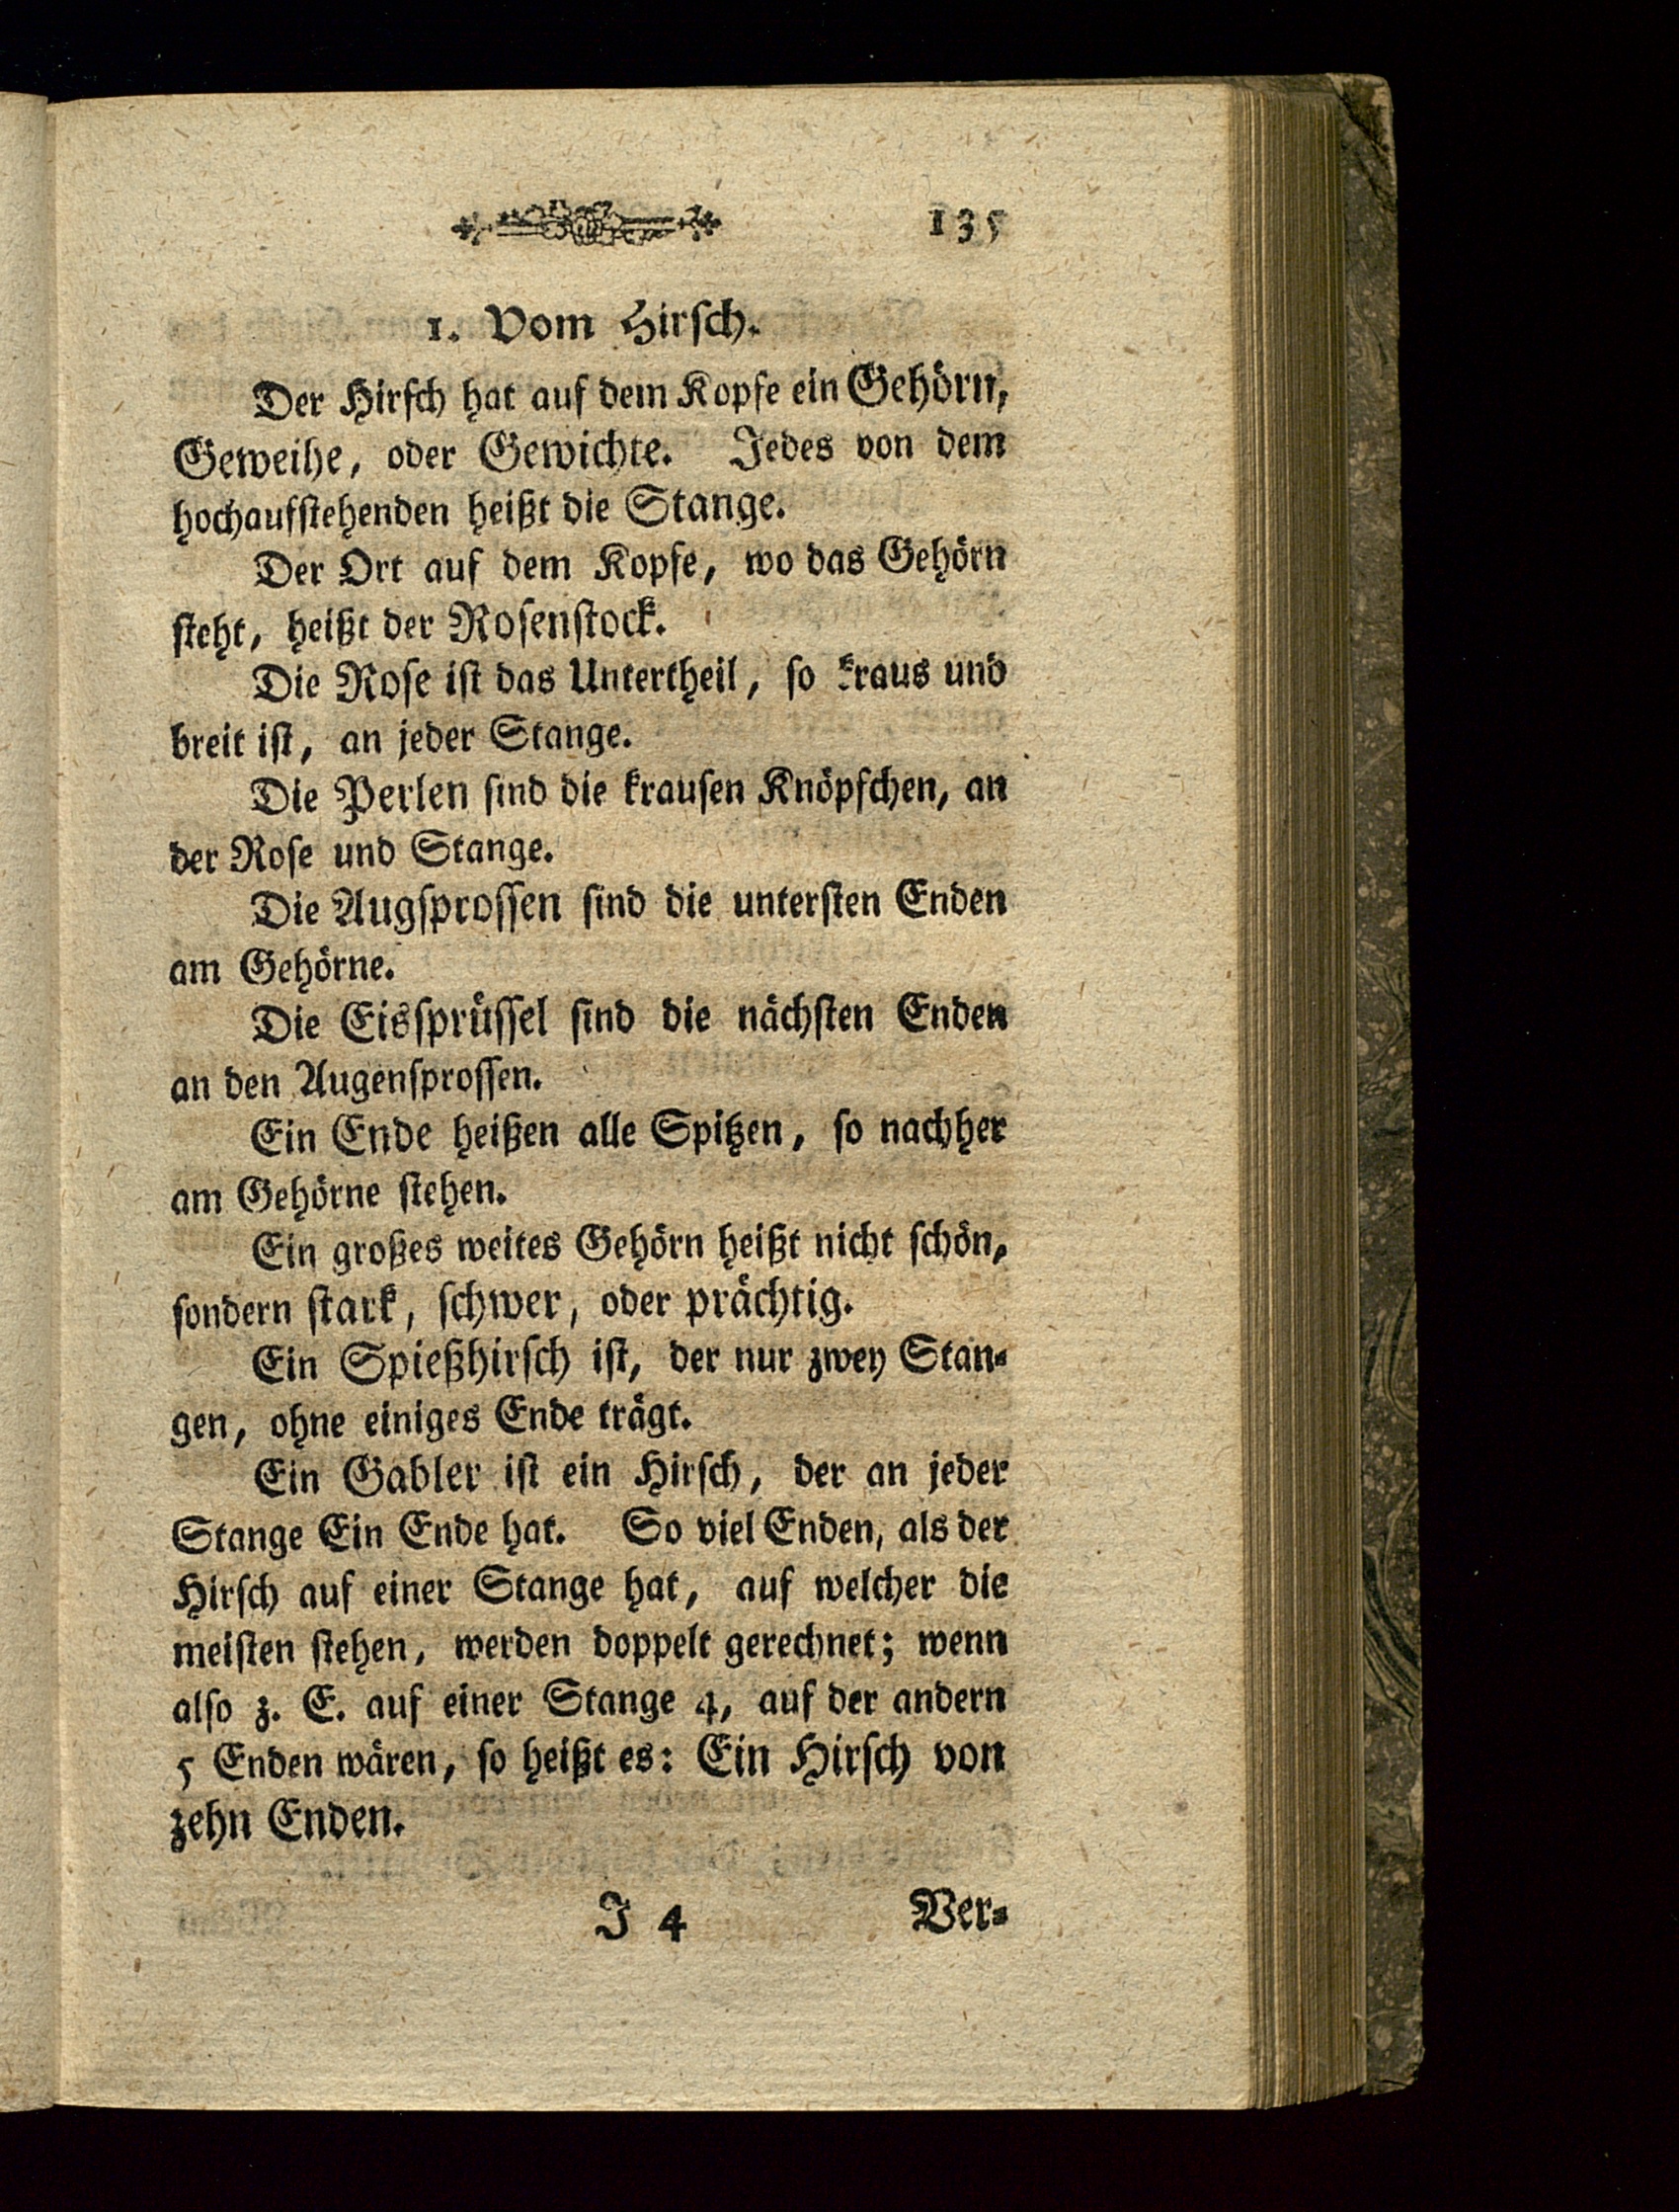 135
1. Vom Hirſch.
Der Hirſch hat auf dem Kopfe ein Gehörn,
Geweihe, oder Gewichte. Jedes von dem
hochaufſtehenden heißt die Stange.
Der Ort auf dem Kopfe, wo das Gehörn
ſteht, heißt der Roſenſtock.
Die Roſe iſt das Untertheil, ſo kraus und
breit iſt, an jeder Stange.
Die Perlen ſind die krauſen Knöpfchen, an
der Roſe und Stange.
Die Augſproſſen ſind die unterſten Enden
am Gehörne.
Die Eisſprüſſel ſind die nächſten Enden
an den Augenſproſſen.
Ein Ende heißen alle Spitzen, ſo nachher
am Gehörne ſtehen.
Ein großes weites Gehörn heißt nicht ſchön,
ſondern ſtark, ſchwer, oder prächtig.
Ein Spießhirſch iſt, der nur zwey Stan⸗
gen, ohne einiges Ende trägt.
Ein Gabler iſt ein Hirſch, der an jeder
Stange Ein Ende hat. So viel Enden, als der
Hirſch auf einer Stange hat, auf welcher die
meiſten ſtehen, werden doppelt gerechnet; wenn
alſo z. E. auf einer Stange 4, auf der andern
5 Enden wären, ſo heißt es: Ein Hirſch von
zehn Enden.
J 4 Ver⸗